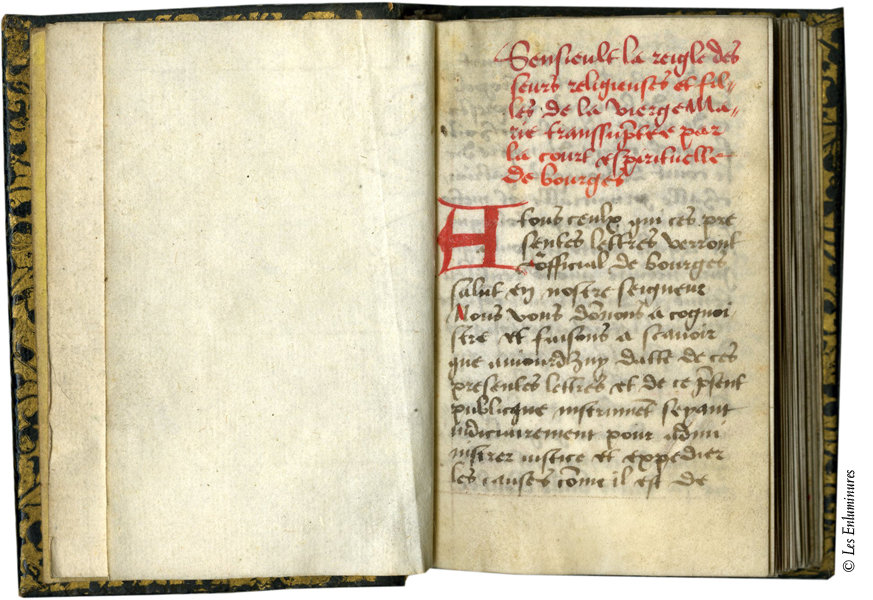 Sensieult la reigle des
seurs religieuses et fil-
les de la vierge Ma-
rie transsuptee par
la court espirituelle
de bourges
A tous ceulx qui ces pre
sentes lettres verront
L'official de bourges
salut en nostre seigneur
Nous vous donnons a cognoi
stre et faisons a scauoir
que auiourdhuy datte de ces
presentes lettres et de ce psent
publicque instrument seyant
iudiciairement pour admi
nistrer iustice et expedier
les causes cõme il est de
© Les Enluminures